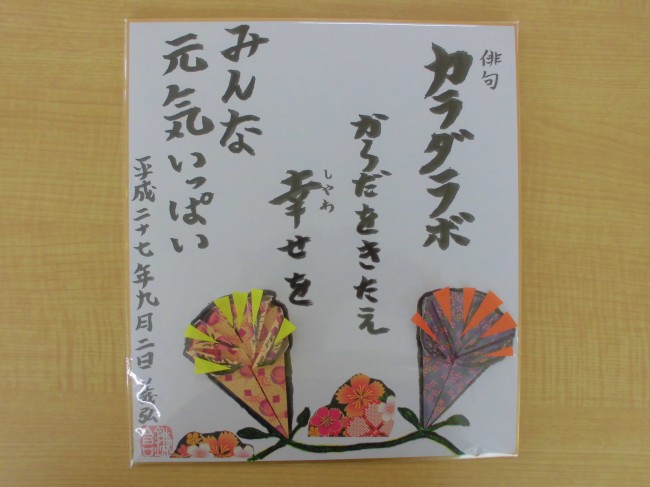 俳句
カラダラボ
からだをきたえ
しやわ
幸せを
みんな
元気いっぱい
平成二十七年九月二日 義弘